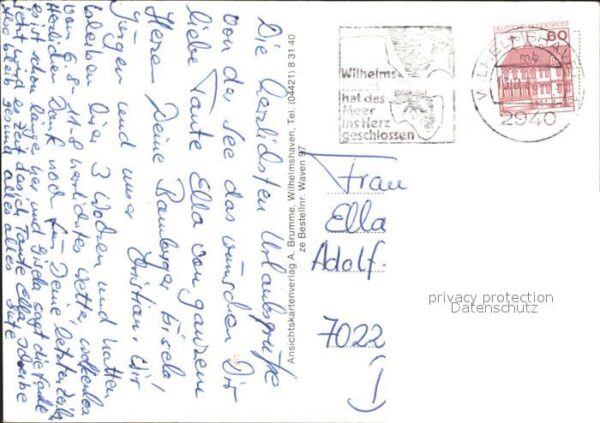 Die herzlichsten Urlaubsgrüße
von der See das wünschen Dir
liebe Tante Ella von ganzem
Herzen Deine Bamberger Gisela,
Jürgen und unser Christian. Wir
bleiben hier 3 Wochen und hatten
vom 6.8-11.8 herrlichstes Wetter,
Herzlichen Dank noch für Deine letzten Zeilen
es ist schon lange her, und Gisela sagt die Tante
jetzt wird es Zeit das ich Tante Ella schreibe
Also bleib gesund alles alles Gute
Ansichtskartenverlag A. Brumme, Wilhelmshaven, Tel. (04421) 8 31 40
ze Bestellnr. Waven 97
Wilhelms
haven
hat das
Meer
ins Herz
geschlossen
WILHELMSHAVEN
mb
2940
DEUTSCHE BUNDESPOST
60
Frau
Ella
Adolf
7022
privacy protection
Datenschutz